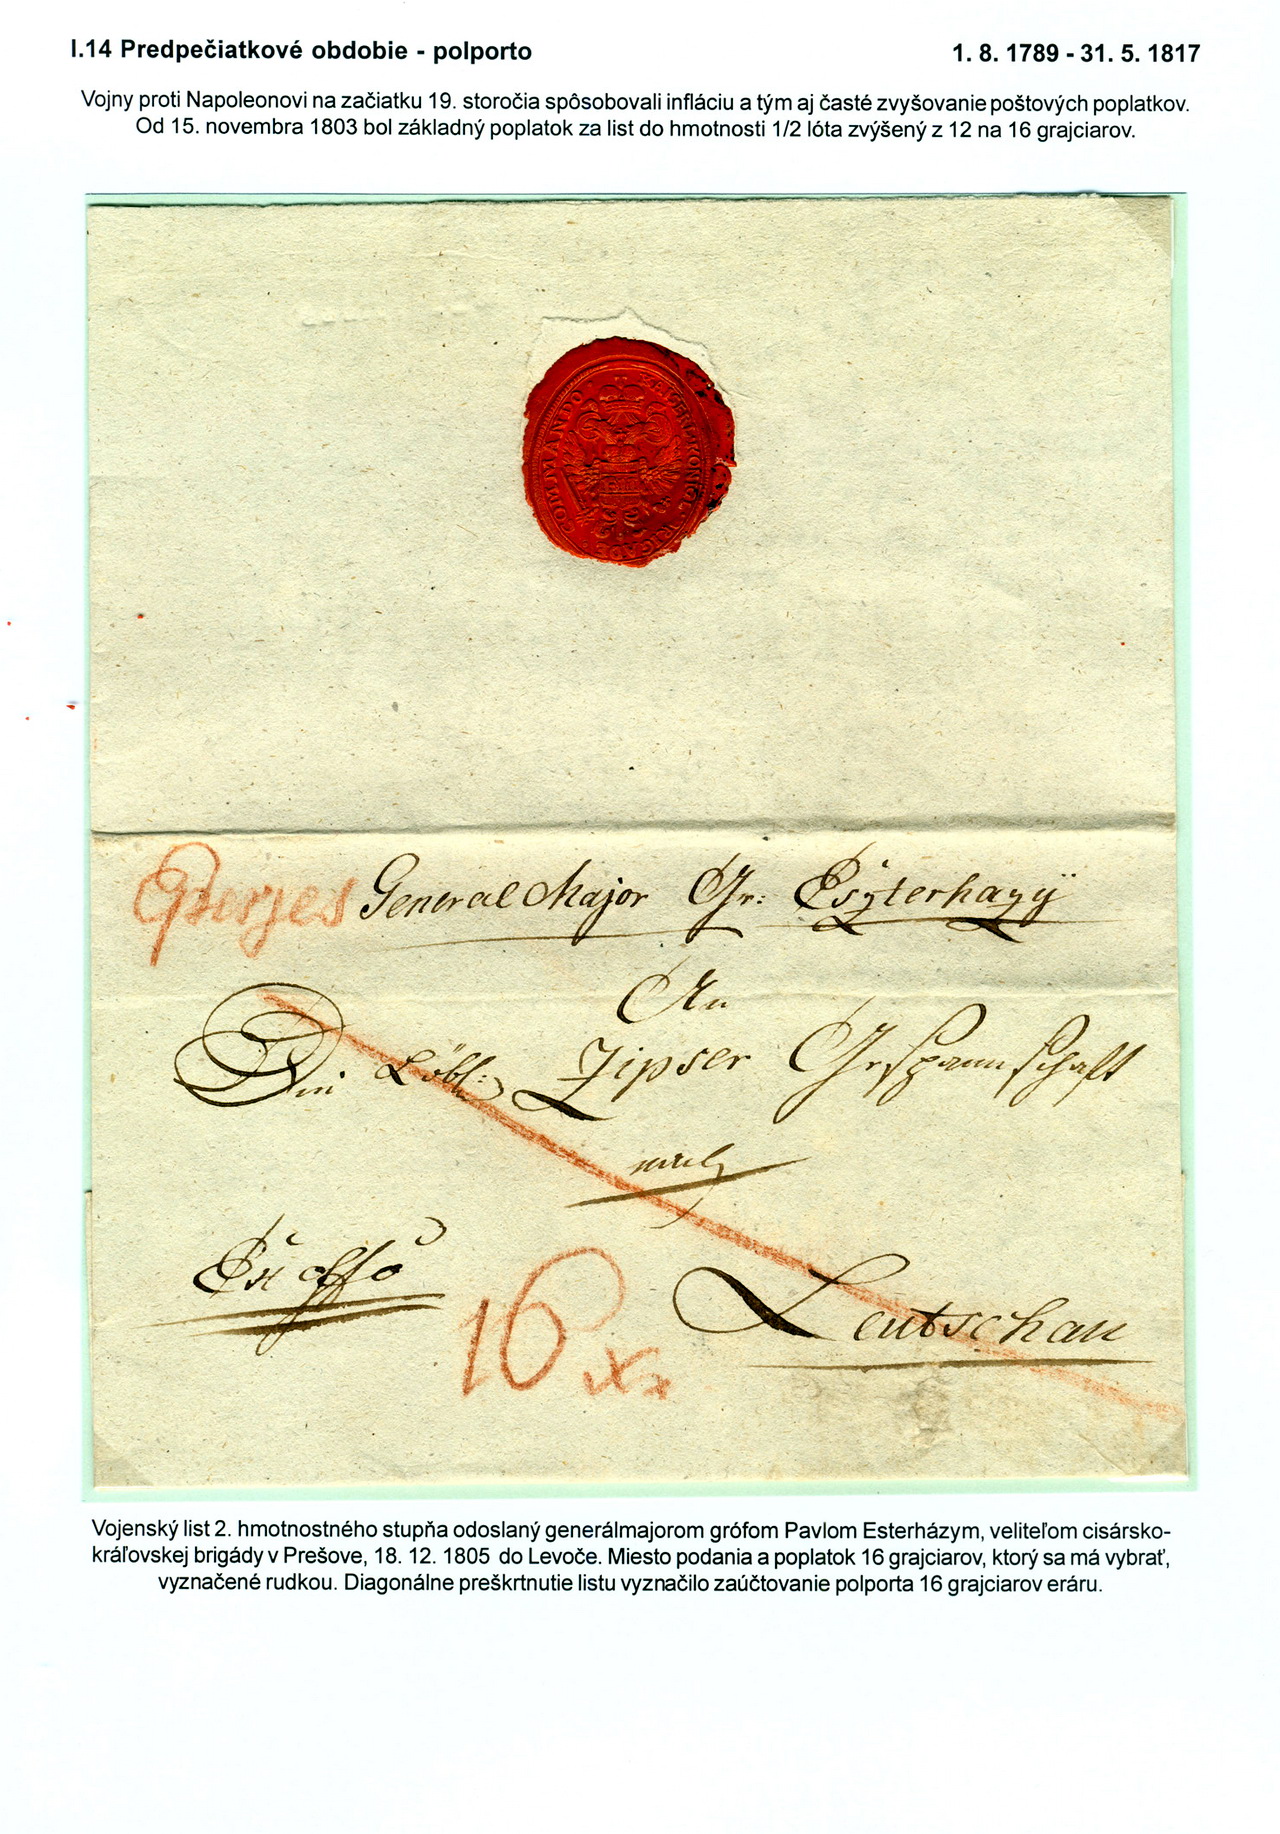 I.14 Predpečiatkové obdobie - polporto
1. 8. 1789 - 31. 5. 1817
Vojny proti Napoleonovi na začiatku 19. storočia spôsobovali infláciu a tým aj časté zvyšovanie poštových poplatkov.
Od 15. novembra 1803 bol základný poplatok za list do hmotnosti 1/2 lóta zvýšený z 12 na 16 grajciarov.
COMMANDO
Eperjes General Major Gr: Eszterhazÿ
An
Löbl: Zipser Gespannschaft
Ex offo
16 Xr
Leutschau
Vojenský list 2. hmotnostného stupňa odoslaný generálmajorom grófom Pavlom Esterházym, veliteľom cisársko-
kráľovskej brigády v Prešove, 18. 12. 1805 do Levoče. Miesto podania a poplatok 16 grajciarov, ktorý sa má vybrať,
vyznačené rudkou. Diagonálne preškrtnutie listu vyznačilo zaúčtovanie polporta 16 grajciarov eráru.